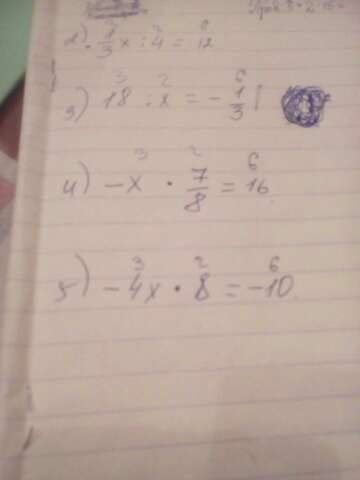 2) · 1/3 x : 4 = 12
3) 18 : x = - 1/3
3 2 6
4) -x · 7/8 = 16
3 2 6
5) -4x · 8 = -10